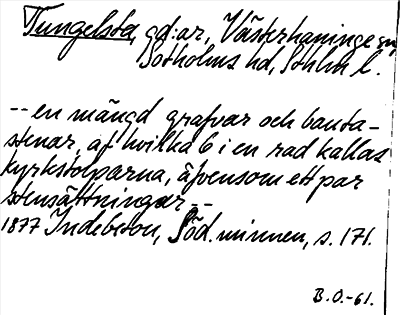 Tungelsta, gd:ar, Västerhaninge sn,
Sotholms hd, Sthlm l.
-- en mängd grafvar och bauta-
stenar, af hvilka 6 i en rad kallas
kyrkstolparna, äfvensom ett par
stensättningar --
1877 Indebetou, Söd. minnen, s. 171.
B.O.-61.